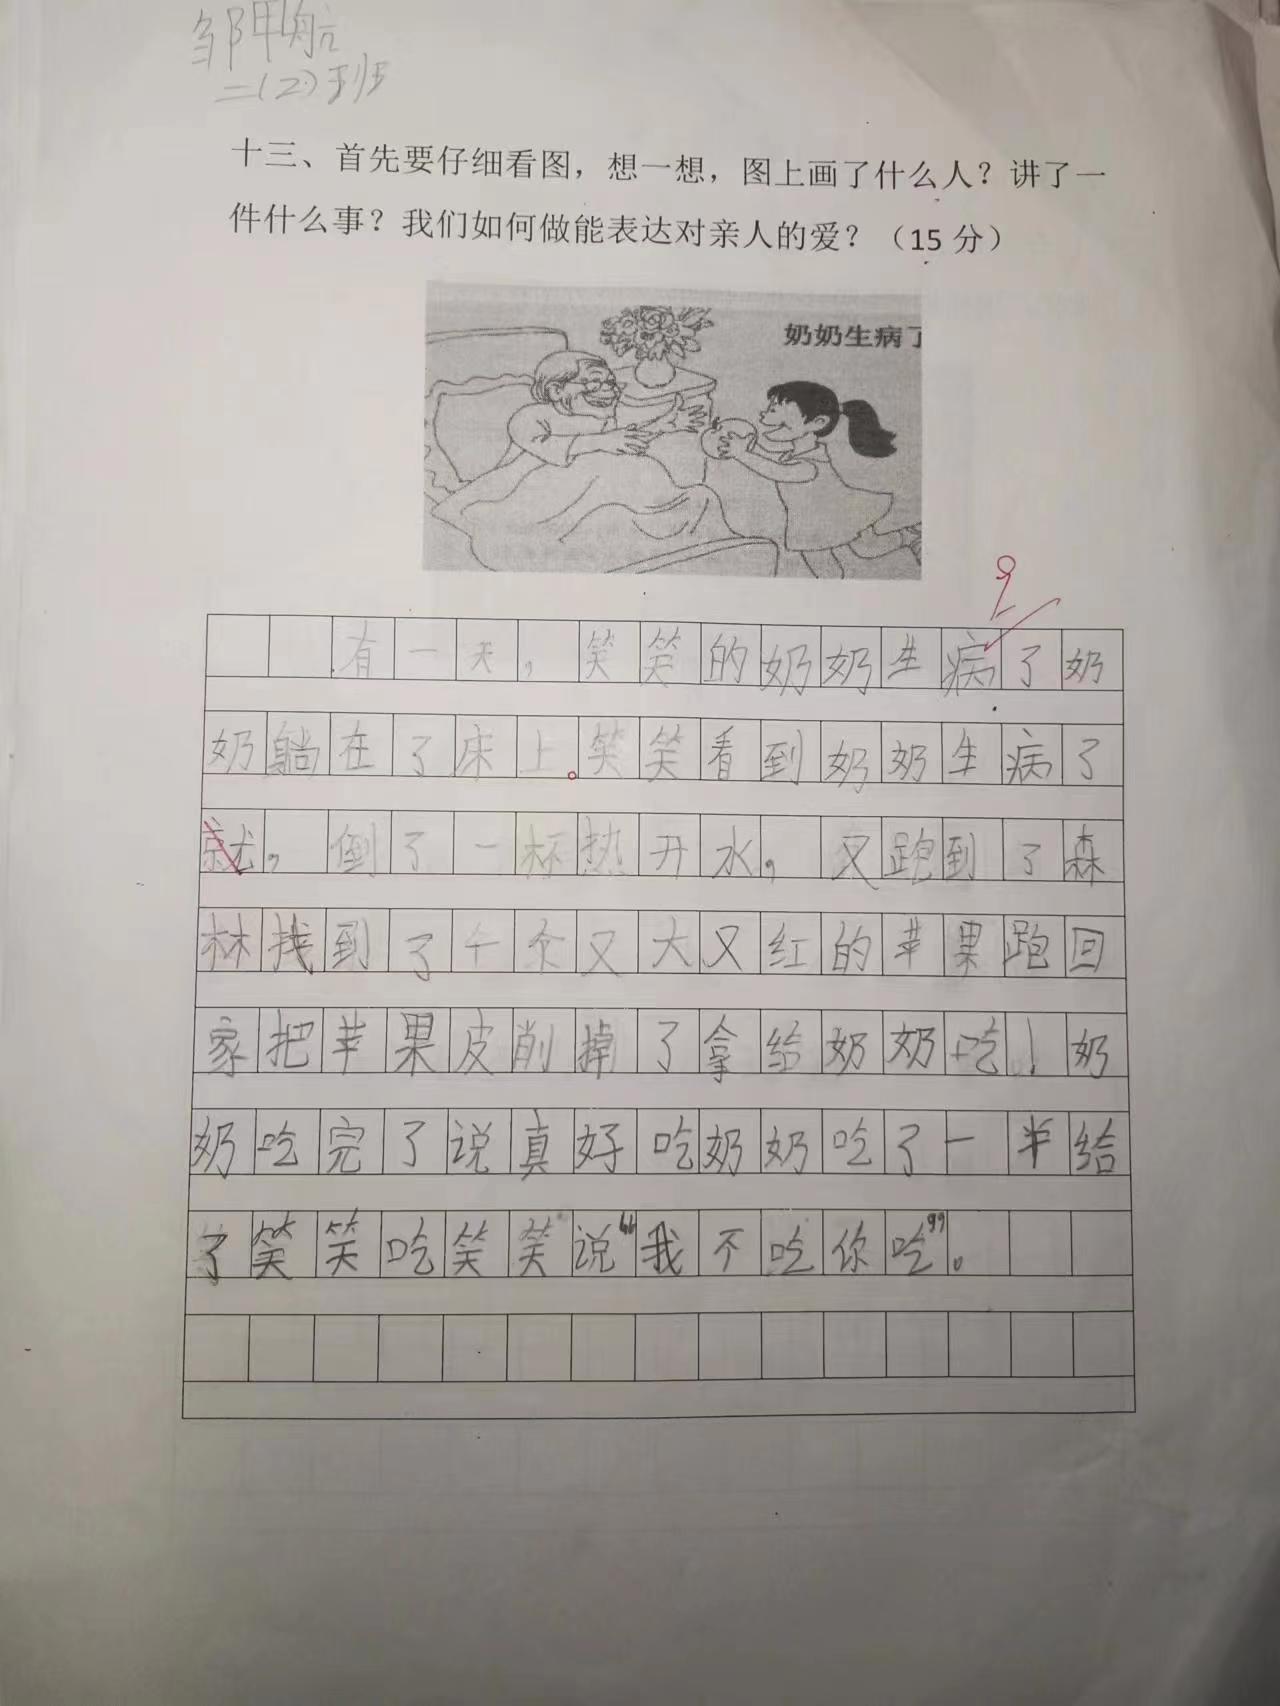 邹甲航
二(2)班
十三、首先要仔细看图，想一想，图上画了什么人？讲了一
件什么事？我们如何做能表达对亲人的爱？（15 分）
奶奶生病了
有一天，笑笑的奶奶生病了奶
奶躺在了床上。笑笑看到奶奶生病了
就，倒了一杯热开水，又跑到了森
林找到了个又大又红的苹果跑回
家把苹果皮削掉了拿给奶奶吃！奶
奶吃完了说真好吃奶奶吃了一半给
了笑笑吃笑笑说“我不吃你吃”。